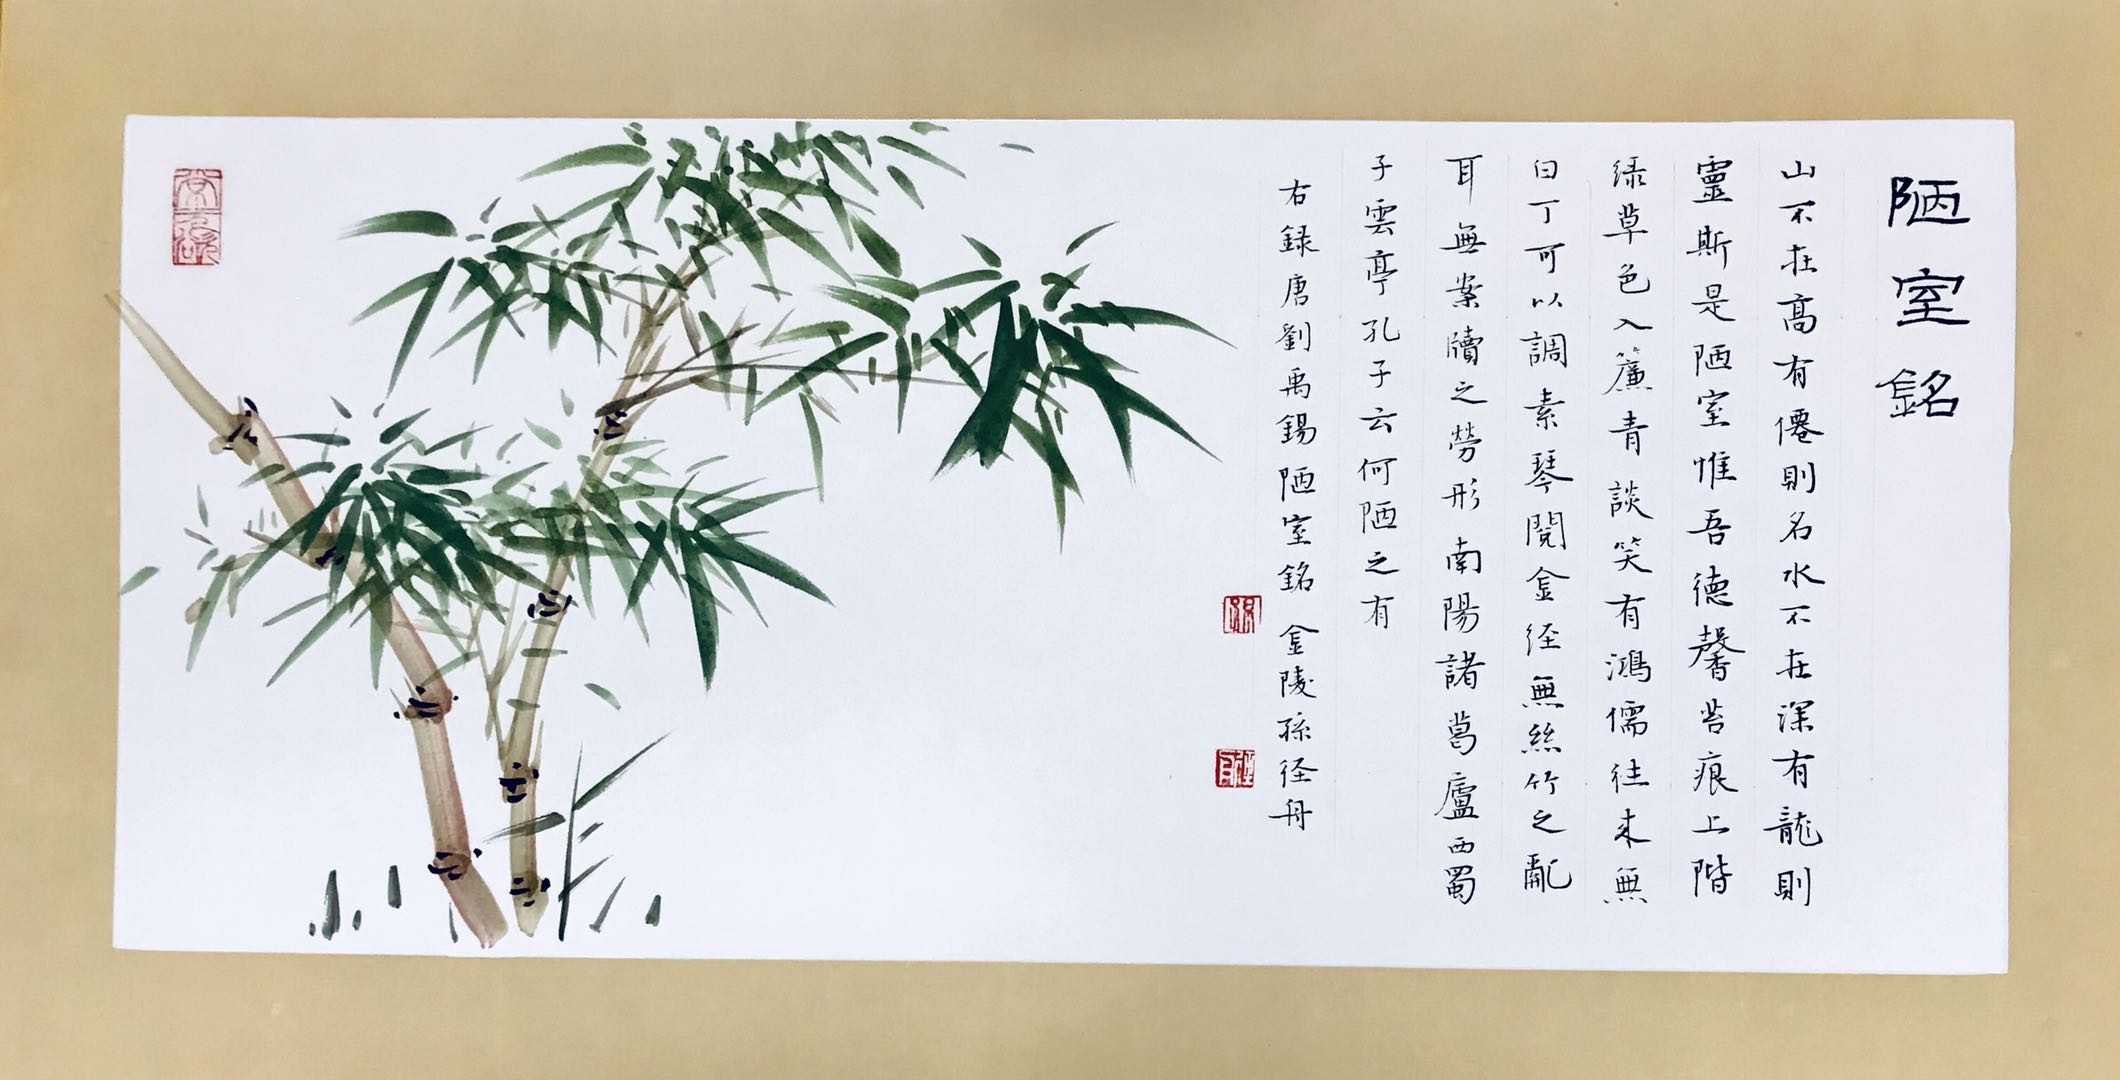 陋室銘
山不在高有僊則名水不在深有龍則
靈斯是陋室惟吾德馨苔痕上階
緑草色入簾青談笑有鴻儒往来無
白丁可以調素琴閲金径無絲竹之亂
耳無案牘之勞形南陽諸葛廬西蜀
子雲亭孔子云何陋之有
右録唐劉禹錫陋室銘 金陵孫径舟